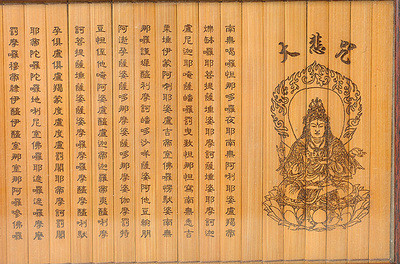 大悲咒
南無喝囉怛那哆囉夜耶南無阿唎耶婆盧羯帝
爍缽囉耶菩提薩埵婆耶摩訶薩埵婆耶摩訶迦
盧尼迦耶唵薩皤囉罰曳數怛那怛寫南無悉吉
栗埵伊蒙阿唎耶婆盧吉帝室佛囉楞馱婆南無
那囉謹墀醯利摩訶皤哆沙咩薩婆阿他豆輸朋
阿逝孕薩婆薩哆那摩婆薩哆那摩婆伽摩罰特
豆怛姪他唵阿婆盧醯盧迦帝迦羅帝夷醯唎
摩訶菩提薩埵薩婆薩婆摩囉摩囉摩醯摩醯唎馱
孕俱盧俱盧羯蒙度盧度盧罰闍耶帝摩訶罰闍
耶帝陀囉陀囉地唎尼室佛囉耶遮囉遮囉摩麼
罰摩囉穆帝隸伊醯伊醯室那室那阿囉參佛囉